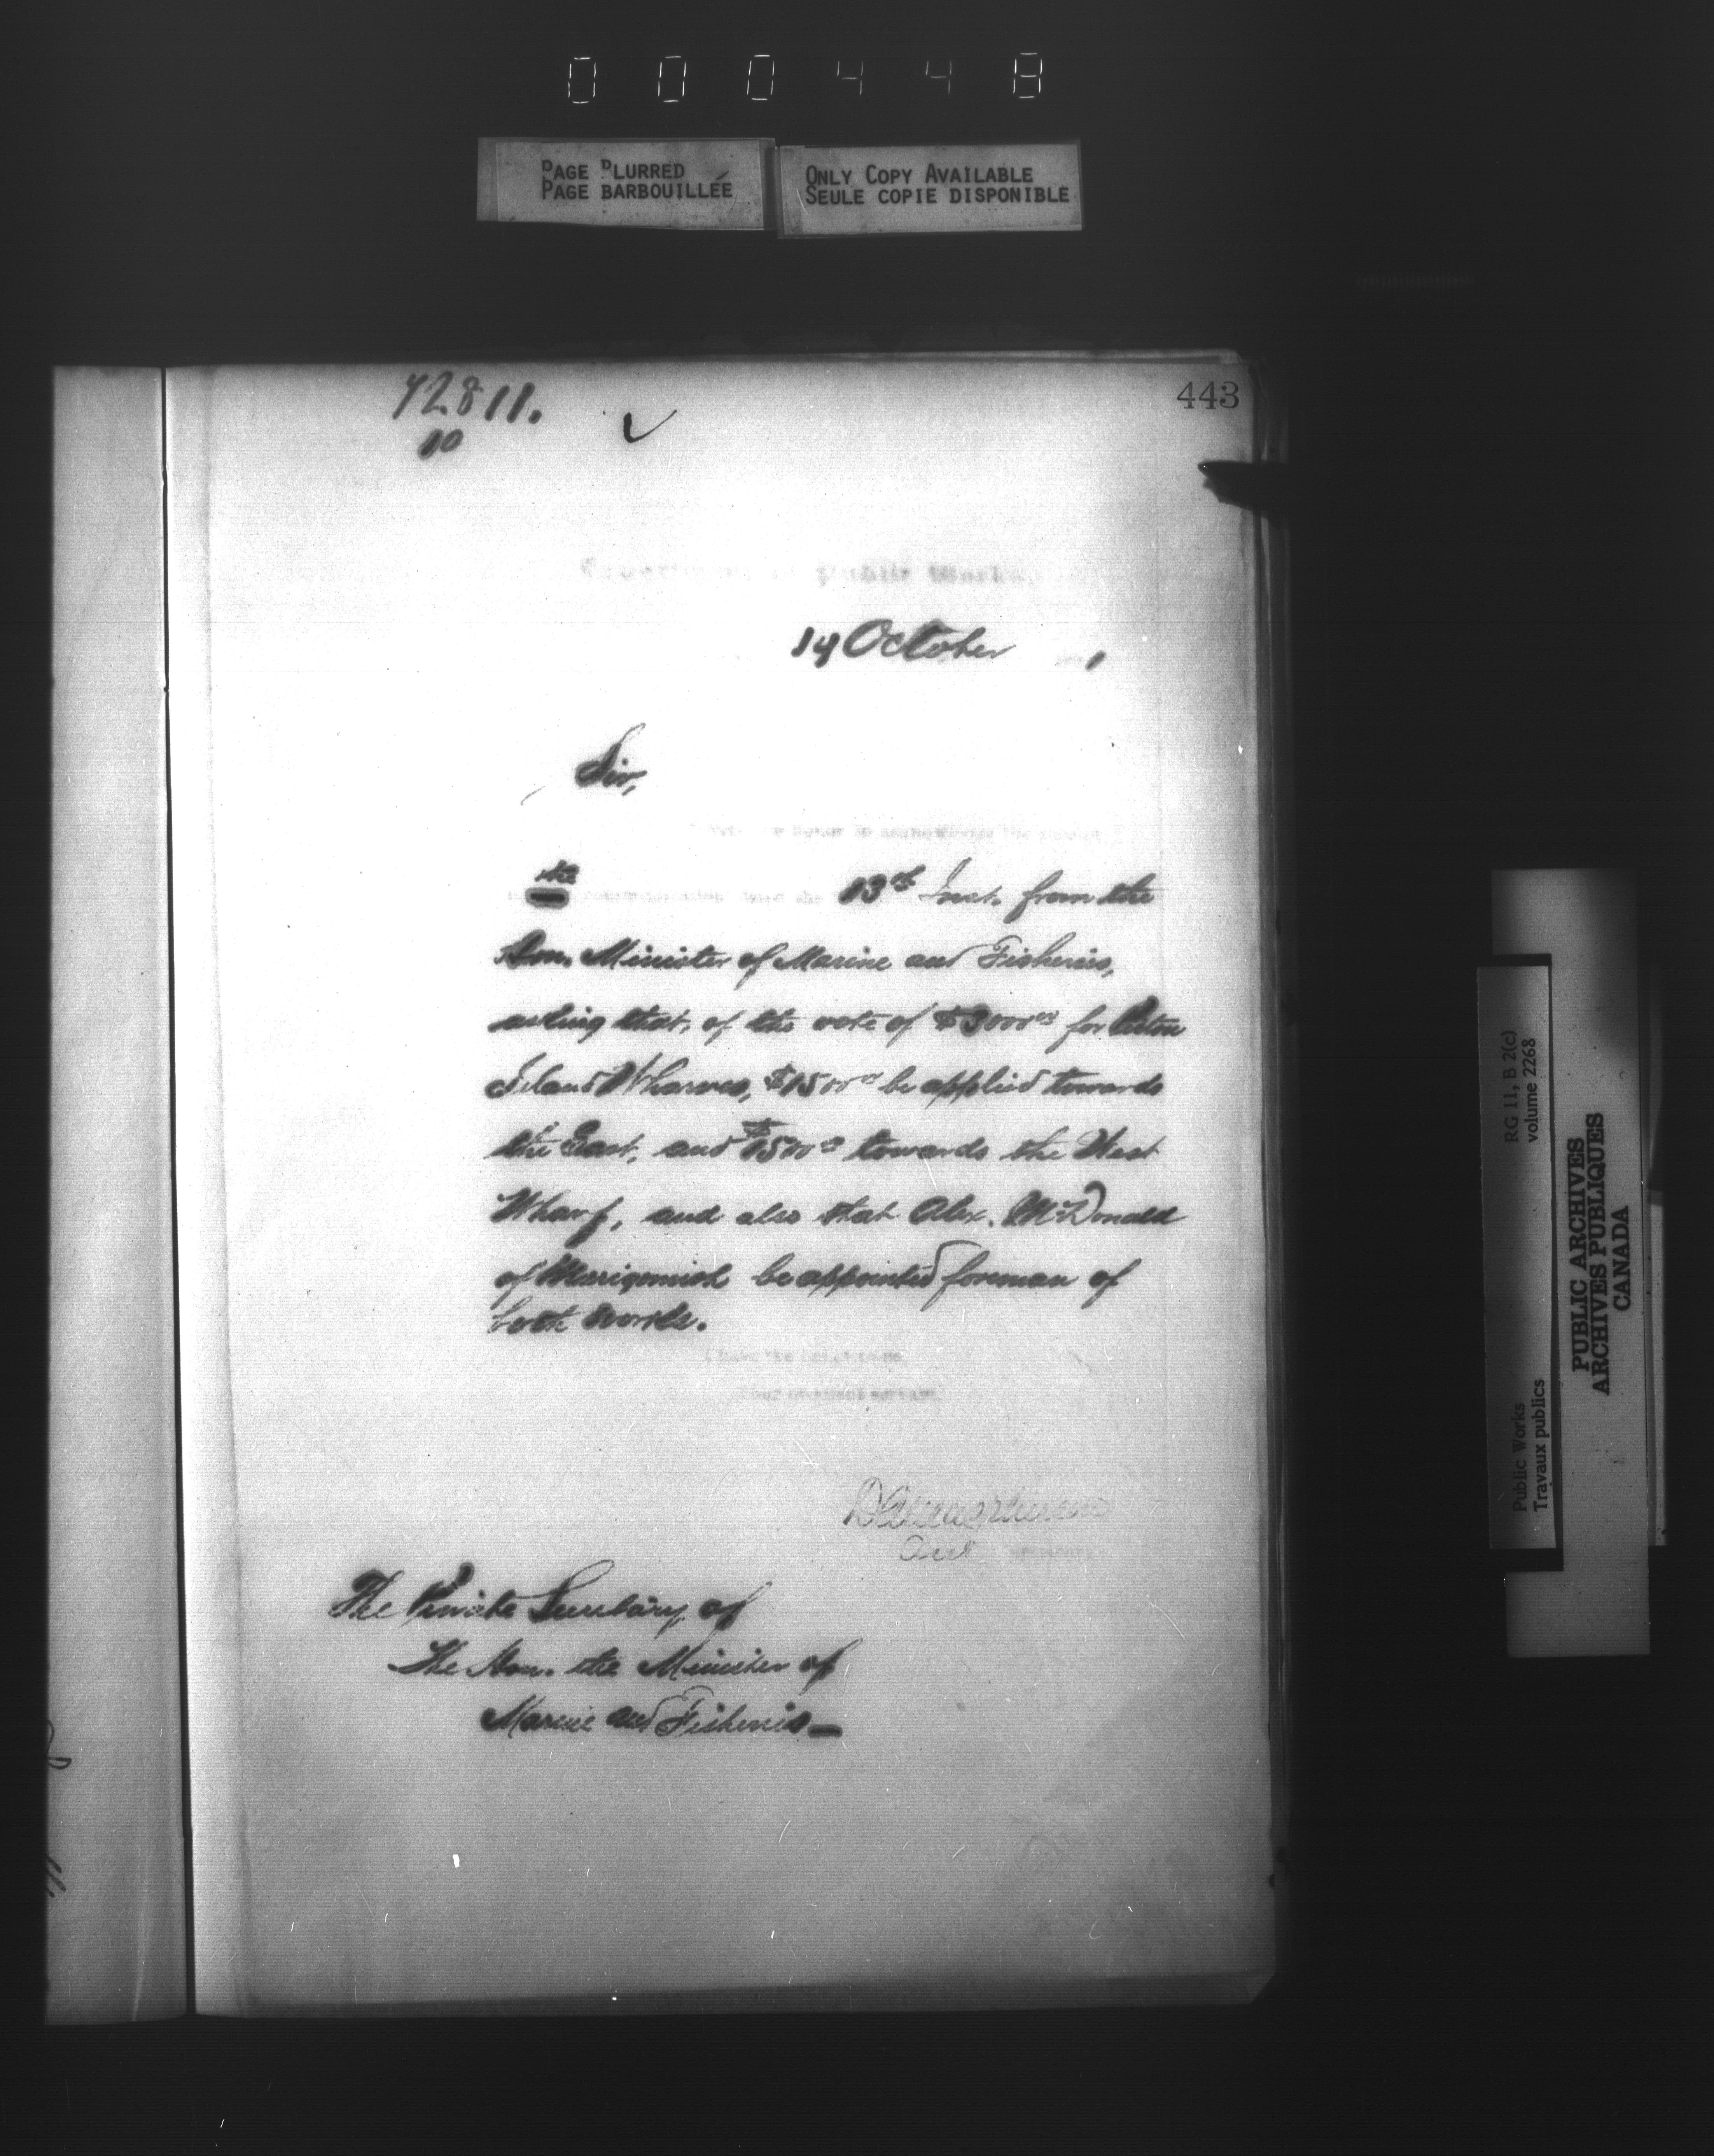 000448
PAGE BLURRED
PAGE BARBOUILLÉE
ONLY COPY AVAILABLE
SEULE COPIE DISPONIBLE
443
72811.
10
Public Works,
14 October,
Sir,
have the honor to acknowledge the receipt
the
13th Inst. from the
Hon. Minister of Marine and Fisheries,
asking that, of the vote of $3000.00 for Pictou
Island Wharves, $1500.00 be applied towards
the East, and $1500.00 towards the West
Wharf, and also that Alex. McDonald
of Merigomish be appointed foreman of
both works.
I have the honor to be
Your obedient servant,
Secretary.
The Private Secretary of
The Hon. the Minister of
Marine and Fisheries —
RG 11, B 2(c)
volume 2268
Public Works
Travaux publics
PUBLIC ARCHIVES
ARCHIVES PUBLIQUES
CANADA